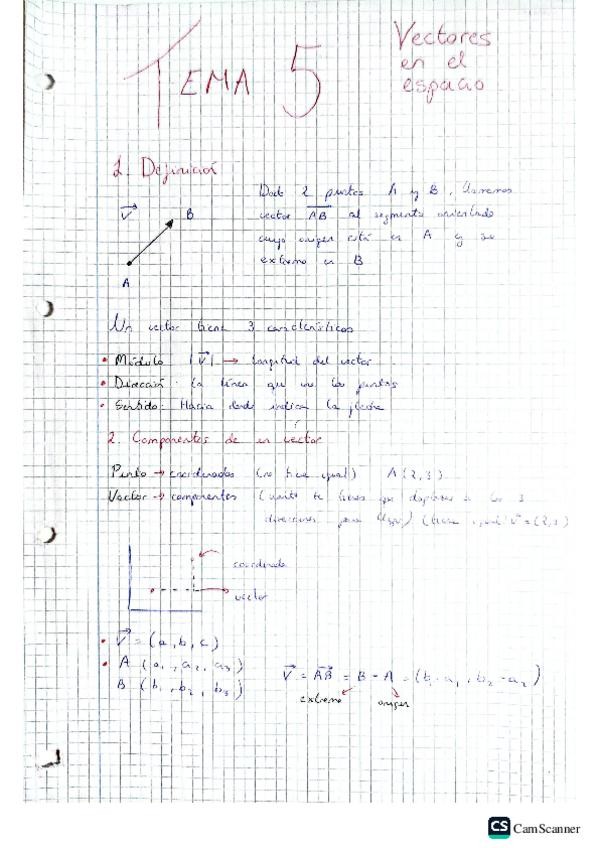 TEMA 5
Vectores
en el
espacio
1. Definición
V B
A
Dado 2 puntos A y B, llamamos
vector AB al segmento orientado
cuyo origen está en A y su
extremo en B
Un vector tiene 3 características
• Módulo |V| → longitud del vector
• Dirección: La línea que une los puntos
• Sentido: Hacia donde indica la flecha
2. Componentes de un vector
Punto → coordenadas (no tiene igual) A(2,3)
Vector → componentes (cuanto te tienes que desplazar en las 3
direcciones para llegar) (tiene igual) V=(2,3)
coordenada
vector
• V = (a, b, c)
• A (a₁, a₂, a₃)
B (b₁, b₂, b₃)
V = AB = B - A = (b₁-a₁, b₂-a₂)
extremo origen
CS CamScanner